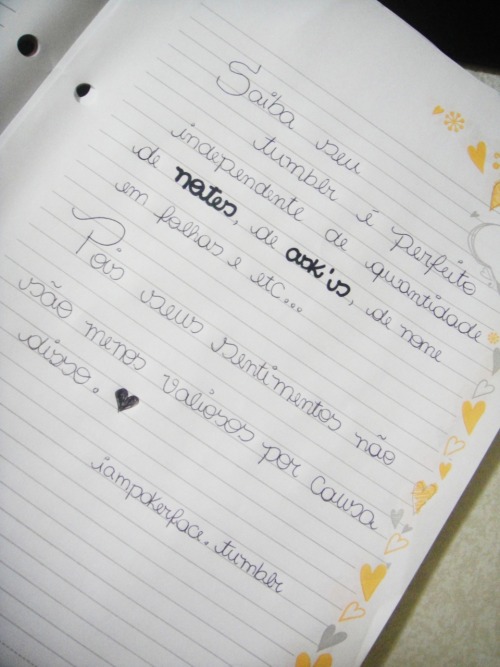 Saiba seu
tumblr é perfeito
independente de quantidade
de notes, de ask's, de nome
em folhas e etc...
Pois seus sentimentos não
são menos valiosos por causa
disso.
iampokerface.tumblr